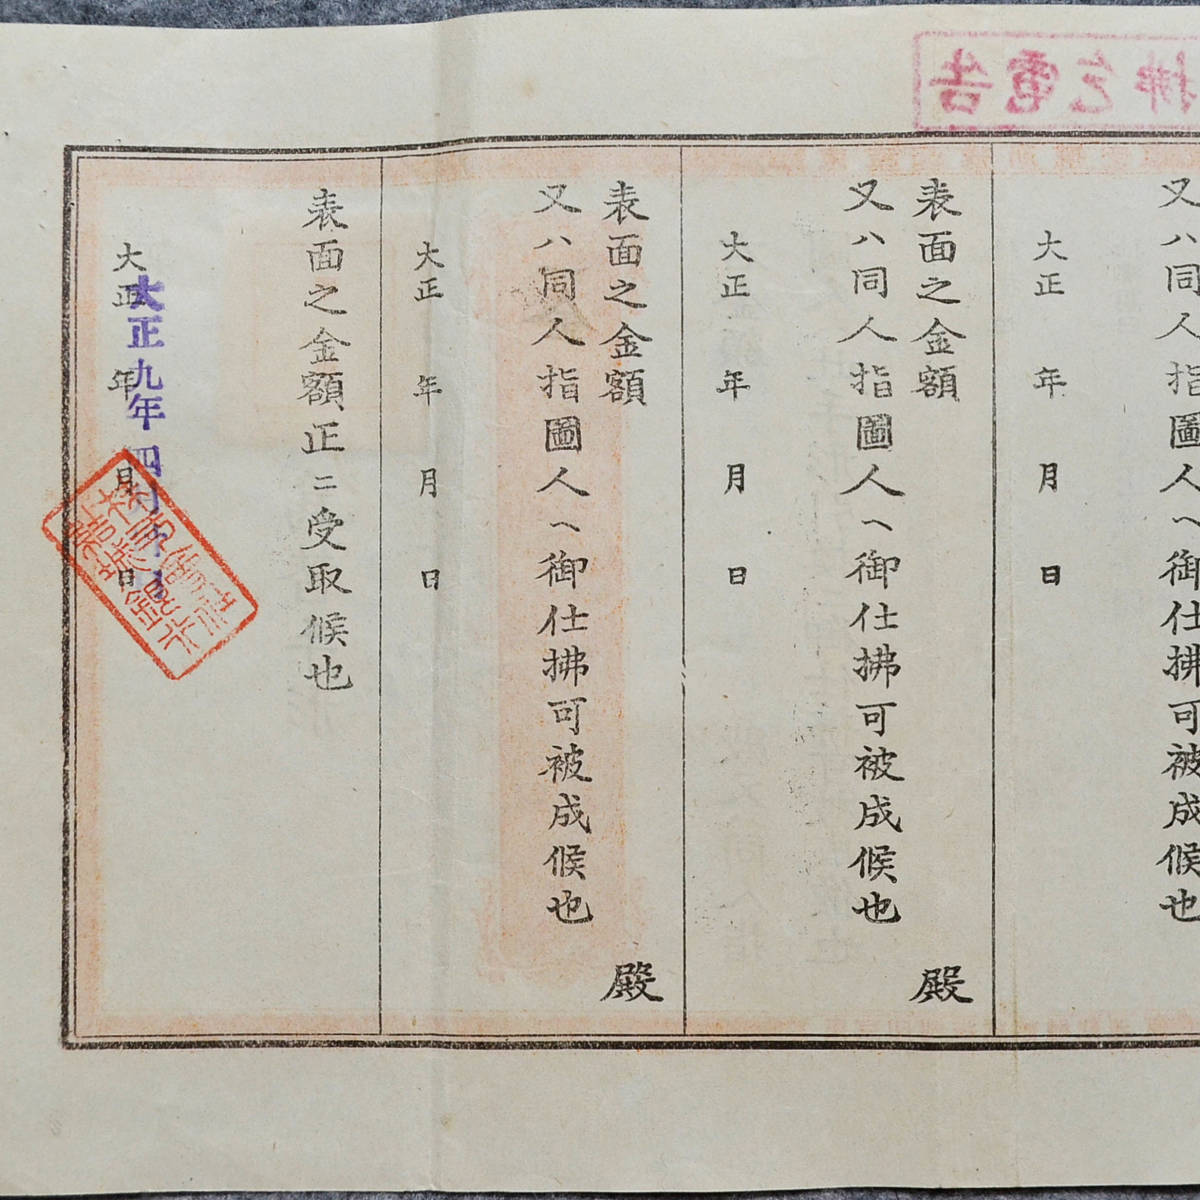 又ハ同人指圖人ヘ御仕拂可被成候也
大正 年 月 日
表面之金額
殿
又ハ同人指圖人ヘ御仕拂可被成候也
大正 年 月 日
表面之金額
殿
又ハ同人指圖人ヘ御仕拂可被成候也
大正 年 月 日
表面之金額正ニ受取候也
大正 年 月 日
大正九年四月